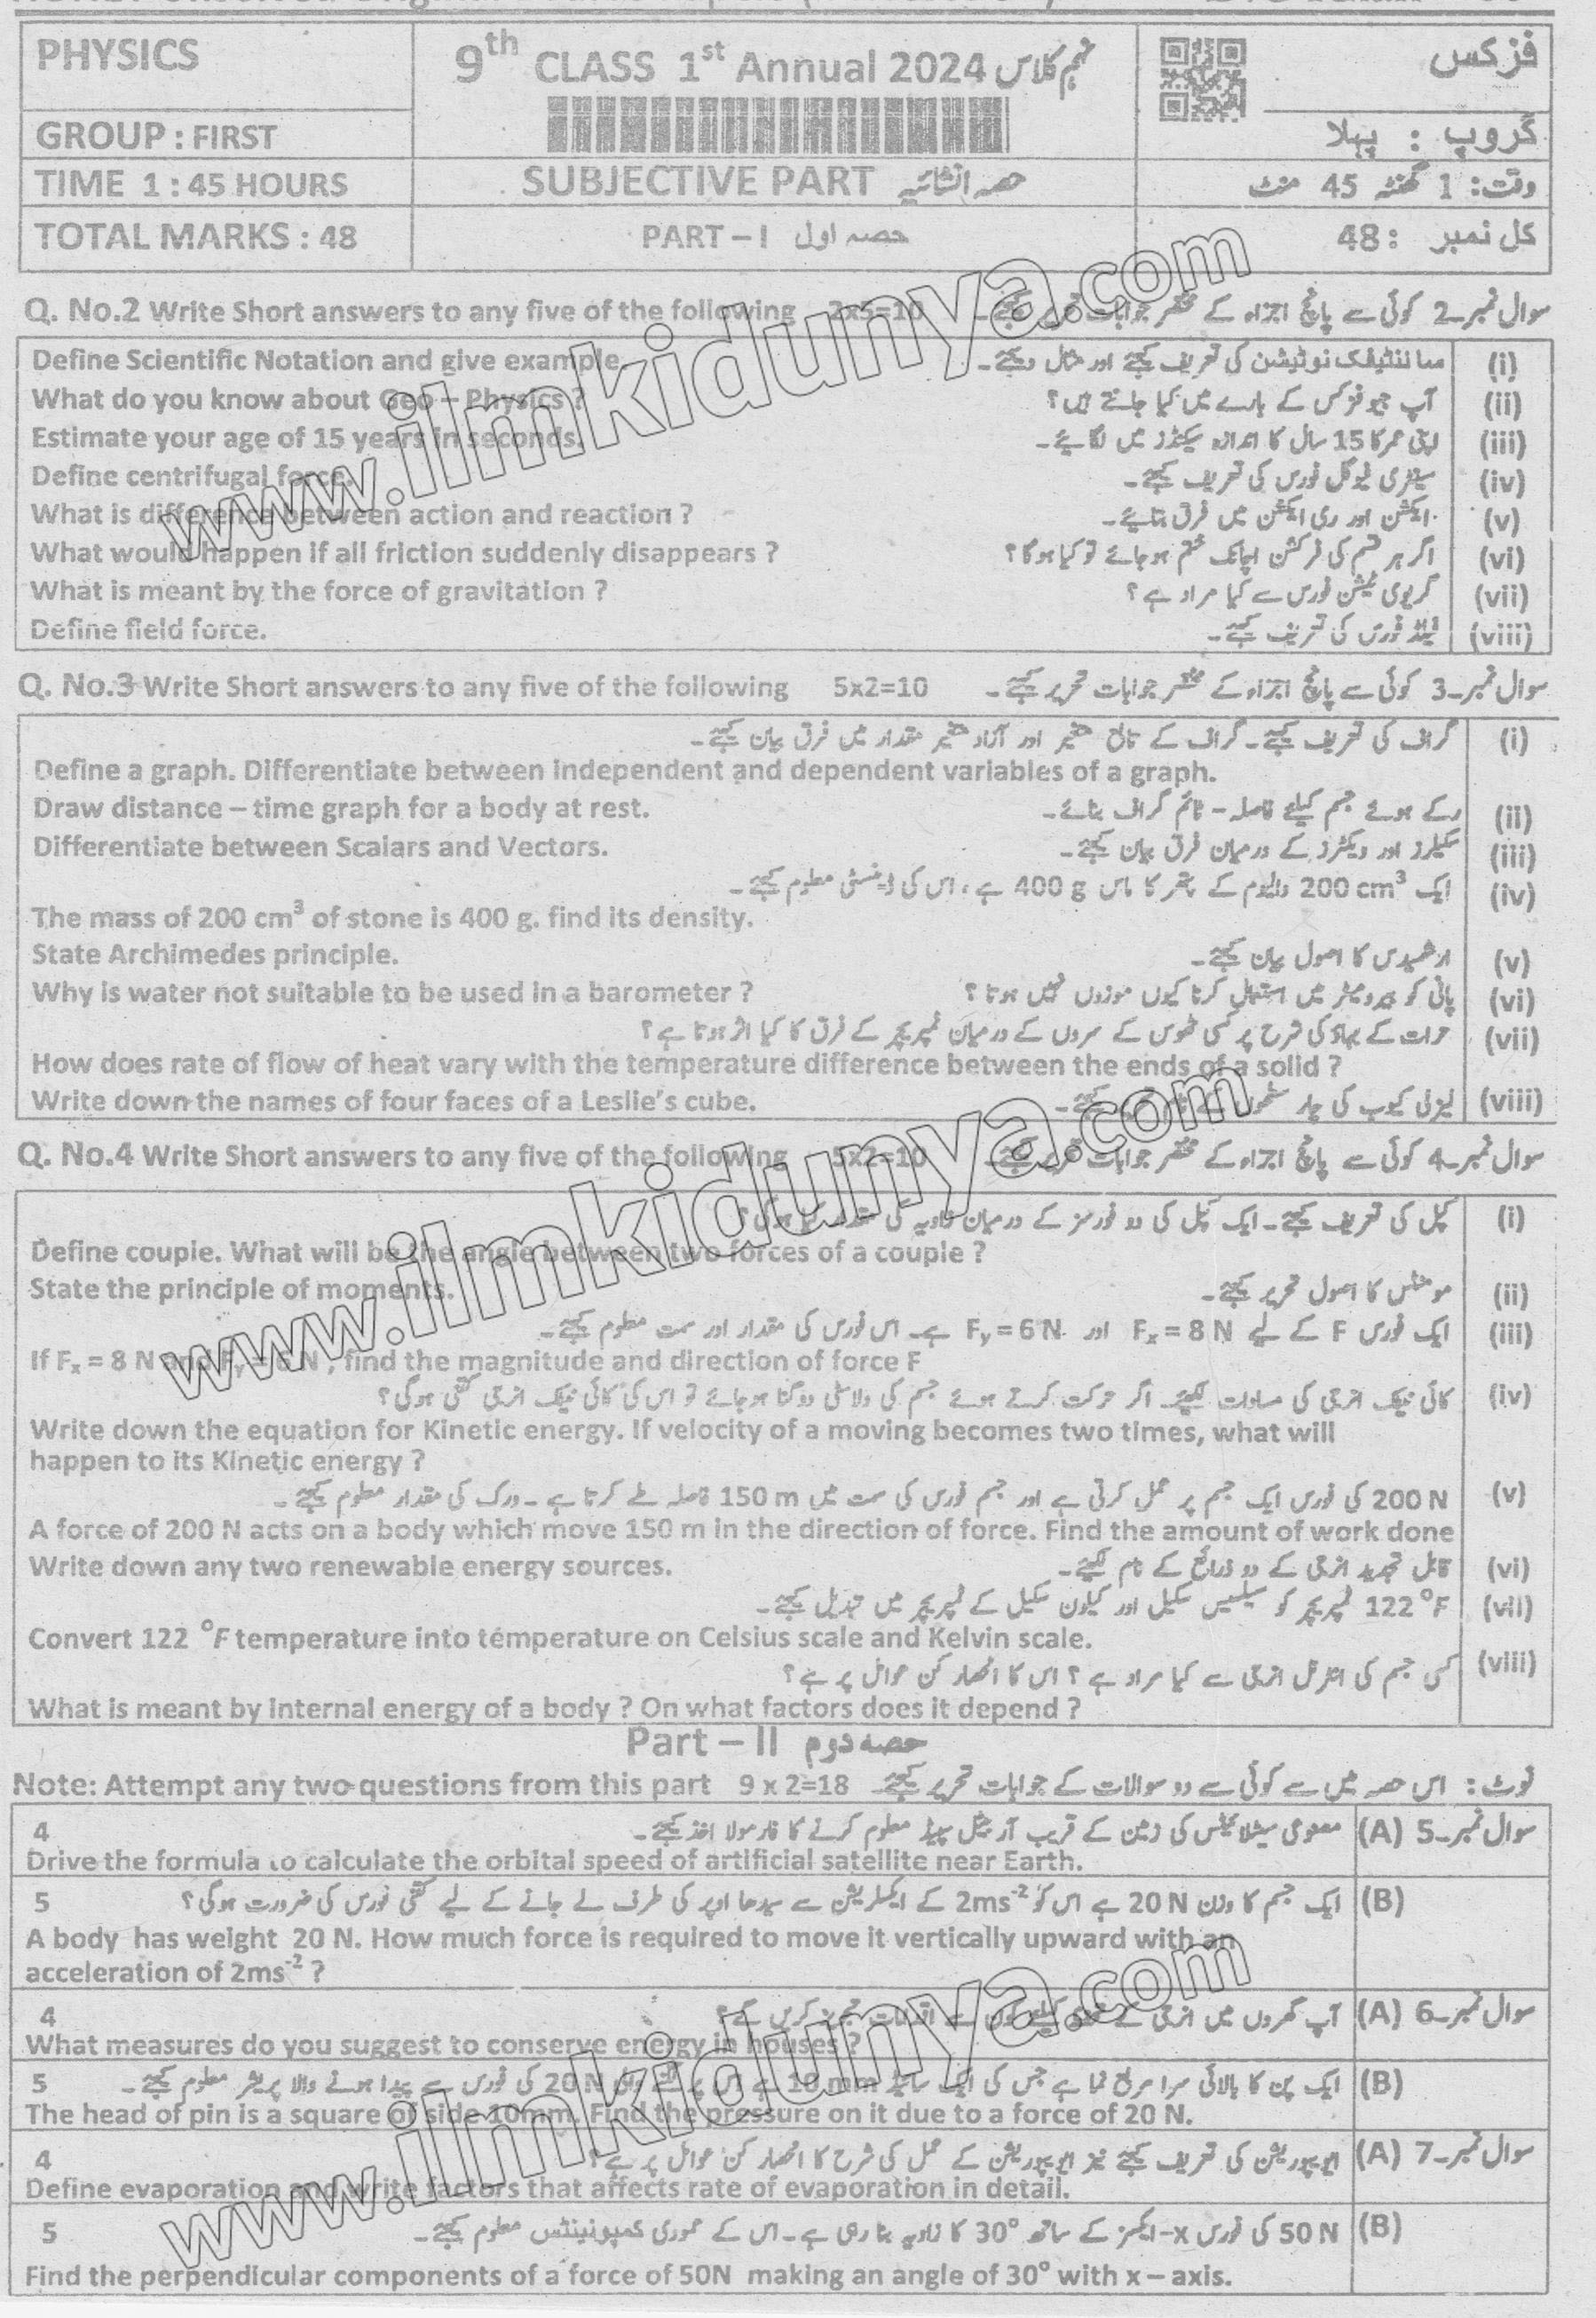 PHYSICS
9th CLASS 1st Annual 2024 نہم کلاس
فزکس
GROUP : FIRST
گروپ : پہلا
TIME 1 : 45 HOURS
SUBJECTIVE PART حصہ انشائیہ
وقت: 1 گھنٹہ 45 منٹ
TOTAL MARKS : 48
PART – I حصہ اول
کل نمبر : 48
Q. No.2 Write Short answers to any five of the following 2x5=10 سوال نمبر۔2 کوئی سے پانچ اجزاء کے مختصر جوابات تحریر کیجئے۔
Define Scientific Notation and give example. سائنٹیفک نوٹیشن کی تعریف کیجئے اور مثال دیجئے۔ (i)
What do you know about Geo – Physics ? آپ جیو فزکس کے بارے میں کیا جانتے ہیں؟ (ii)
Estimate your age of 15 years in seconds. اپنی عمر کا 15 سال کا اندازہ سیکنڈز میں لگائیے۔ (iii)
Define centrifugal force. سینٹری فیوگل فورس کی تعریف کیجئے۔ (iv)
What is difference between action and reaction ? ایکشن اور ری ایکشن میں فرق بتائیے۔ (v)
What would happen if all friction suddenly disappears ? اگر ہر قسم کی فرکشن اچانک ختم ہو جائے تو کیا ہوگا؟ (vi)
What is meant by the force of gravitation ? گریوی ٹیشن فورس سے کیا مراد ہے؟ (vii)
Define field force. فیلڈ فورس کی تعریف کیجئے۔ (viii)
Q. No.3 Write Short answers to any five of the following 5x2=10 سوال نمبر۔3 کوئی سے پانچ اجزاء کے مختصر جوابات تحریر کیجئے۔
گراف کی تعریف کیجئے۔ گراف کے تابع متغیر اور آزاد متغیر مقدار میں فرق بیان کیجئے۔ (i)
Define a graph. Differentiate between independent and dependent variables of a graph.
Draw distance – time graph for a body at rest. رکے ہوئے جسم کیلئے فاصلہ - ٹائم گراف بنائیے۔ (ii)
Differentiate between Scalars and Vectors. سکیلرز اور ویکٹرز کے درمیان فرق بیان کیجئے۔ (iii)
ایک 200 cm³ والیوم کے پتھر کا ماس 400 g ہے، اس کی ڈینسٹی معلوم کیجئے۔ (iv)
The mass of 200 cm³ of stone is 400 g. find its density.
State Archimedes principle. ارشمیدس کا اصول بیان کیجئے۔ (v)
Why is water not suitable to be used in a barometer ? پانی کو بیرومیٹر میں استعمال کرنا کیوں موزوں نہیں ہوتا ؟ (vi)
حرارت کے بہاؤ کی شرح پر کسی ٹھوس کے سروں کے درمیان ٹمپریچر کے فرق کا کیا اثر ہوتا ہے؟ (vii)
How does rate of flow of heat vary with the temperature difference between the ends of a solid ?
Write down the names of four faces of a Leslie's cube. لیزلی کیوب کی چار سطحوں کے نام کیجئے۔ (viii)
Q. No.4 Write Short answers to any five of the following 5x2=10 سوال نمبر۔4 کوئی سے پانچ اجزاء کے مختصر جوابات تحریر کیجئے۔
کپل کی تعریف کیجئے۔ ایک کپل کی دو فورسز کے درمیان زاویہ کی مقدار کیا ہوگی؟ (i)
Define couple. What will be the angle between two forces of a couple ?
State the principle of moments. مومنٹس کا اصول تحریر کیجئے۔ (ii)
ایک فورس F کے لیے Fx = 8 N اور Fy = 6 N ہے۔ اس فورس کی مقدار اور سمت معلوم کیجئے۔ (iii)
If Fx = 8 N and Fy = 6 N , find the magnitude and direction of force F
کائی نیٹک انرجی کی مساوات لکھیئے۔ اگر حرکت کرتے ہوئے جسم کی ولاسٹی دوگنا ہو جائے تو اس کی کائی نیٹک انرجی کتنی ہوگی؟ (iv)
Write down the equation for Kinetic energy. If velocity of a moving becomes two times, what will
happen to its Kinetic energy ?
200 N کی فورس ایک جسم پر عمل کرتی ہے اور جسم فورس کی سمت میں 150 m فاصلہ طے کرتا ہے۔ ورک کی مقدار معلوم کیجئے۔ (v)
A force of 200 N acts on a body which move 150 m in the direction of force. Find the amount of work done
Write down any two renewable energy sources. قابل تجدید انرجی کے دو ذرائع کے نام لکھیے۔ (vi)
122 °F ٹمپریچر کو سیلسیس سکیل اور کیلون سکیل کے ٹمپریچر میں تبدیل کیجئے۔ (vii)
Convert 122 °F temperature into temperature on Celsius scale and Kelvin scale.
کسی جسم کی انٹرنل انرجی سے کیا مراد ہے ؟ اس کا انحصار کن عوامل پر ہے؟ (viii)
What is meant by Internal energy of a body ? On what factors does it depend ?
Part – II حصہ دوم
Note: Attempt any two questions from this part 9 x 2=18 نوٹ : اس حصہ میں سے کوئی سے دو سوالات کے جوابات تحریر کیجئے۔
4 مصنوعی سیٹلائٹس کی زمین کے قریب آربیٹل سپیڈ معلوم کرنے کا فارمولا اخذ کیجئے۔ (A) سوال نمبر۔5
Drive the formula to calculate the orbital speed of artificial satellite near Earth.
5 ایک جسم کا وزن 20 N ہے اس کو 2ms⁻² کے ایکسلریشن سے سیدھا اوپر کی طرف لے جانے کے لیے کتنی فورس کی ضرورت ہوگی؟ (B)
A body has weight 20 N. How much force is required to move it vertically upward with an
acceleration of 2ms⁻² ?
4 آپ گھروں میں انرجی کے کیلئے کون سے اقدامات تجویز کریں گے؟ (A) سوال نمبر۔6
What measures do you suggest to conserve energy in houses ?
5 ایک پن کا بالائی سرا مربع نما ہے جس کی ایک سائیڈ 10 mm ہے اس پر 20 N کی فورس سے پیدا ہونے والا پریشر معلوم کیجئے۔ (B)
The head of pin is a square of side 10mm. Find the pressure on it due to a force of 20 N.
4 ایویپوریشن کی تعریف کیجئے نیز ایویپوریشن کے عمل کی شرح کا انحصار کن عوامل پر ہے؟ (A) سوال نمبر۔7
Define evaporation and write factors that affects rate of evaporation in detail.
5 50 N کی فورس x-ایکسز کے ساتھ 30° کا زاویہ بنا رہی ہے۔ اس کے عمودی کمپونینٹس معلوم کیجئے۔ (B)
Find the perpendicular components of a force of 50N making an angle of 30° with x – axis.
www.ilmkidunya.com
www.ilmkidunya.com
www.ilmkidunya.com